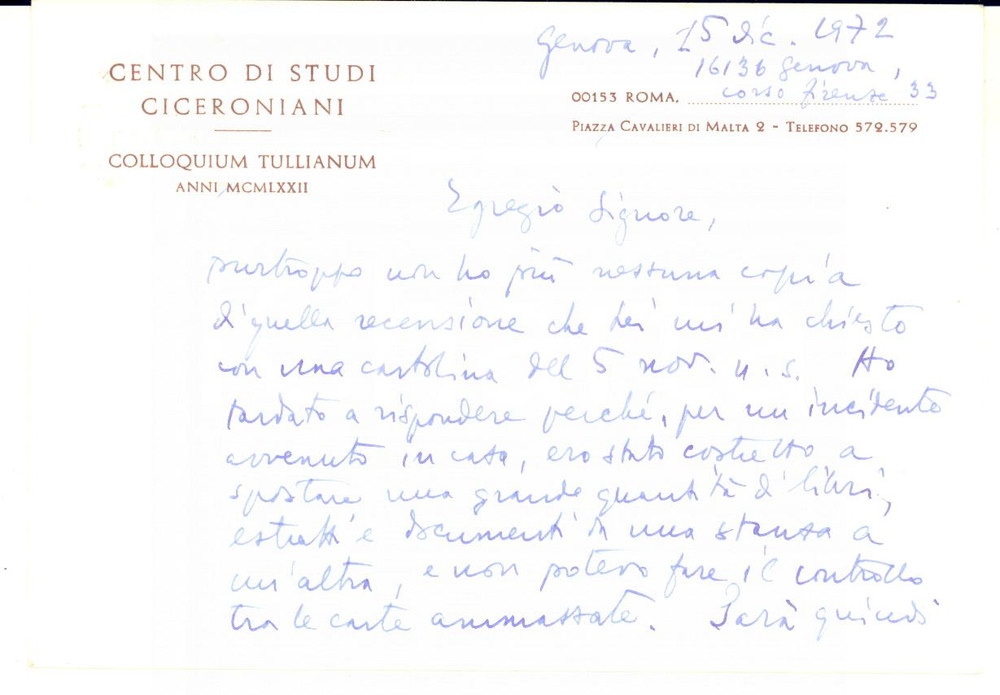 CENTRO DI STUDI
CICERONIANI
COLLOQUIUM TULLIANUM
ANNI MCMLXXII
Genova, 15 dic. 1972
16136 Genova,
corso Firenze 33
00153 ROMA,
PIAZZA CAVALIERI DI MALTA 2 - TELEFONO 572.579
Egregio Signore,
purtroppo non ho più nessuna copia
di quella recensione che Lei mi ha chiesto
con una cartolina del 5 nov. u.s. Ho
tardato a rispondere perché, per un incidente
avvenuto in casa, ero stato costretto a
spostare una grande quantità di libri,
estratti e documenti da una stanza a
un'altra, e non potevo fare il controllo
tra le carte ammassate. Sarà quindi